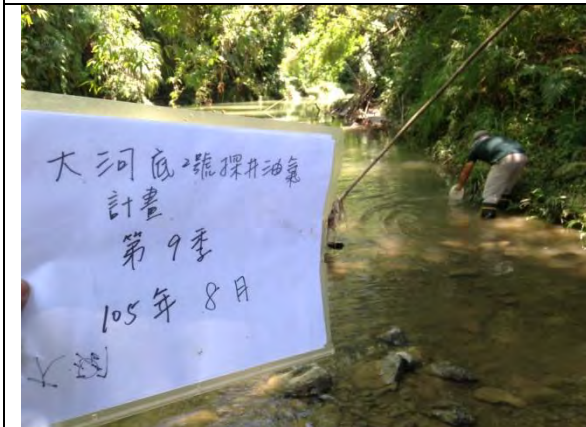 大河底2號探井油氣
計畫
第9季
105年8月